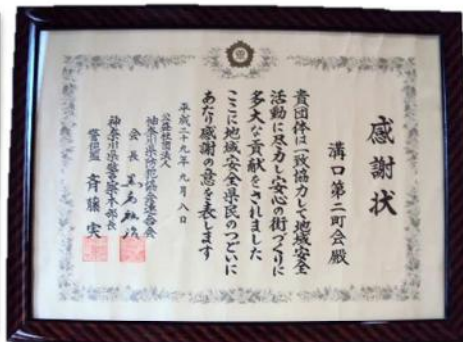 感謝状
溝口第二町会殿
貴団体は一致協力して地域安全
活動に尽力し安心の街づくりに
多大な貢献をされました
ここに地域安全県民のつどいに
あたり感謝の意を表します
平成二十九年九月八日
公益社団法人
神奈川県防犯協会連合会
会長
神奈川県警察本部長
警視監 斉藤実